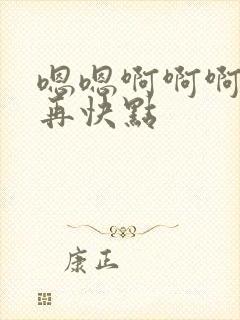 嗯嗯啊啊啊
再快點
康正